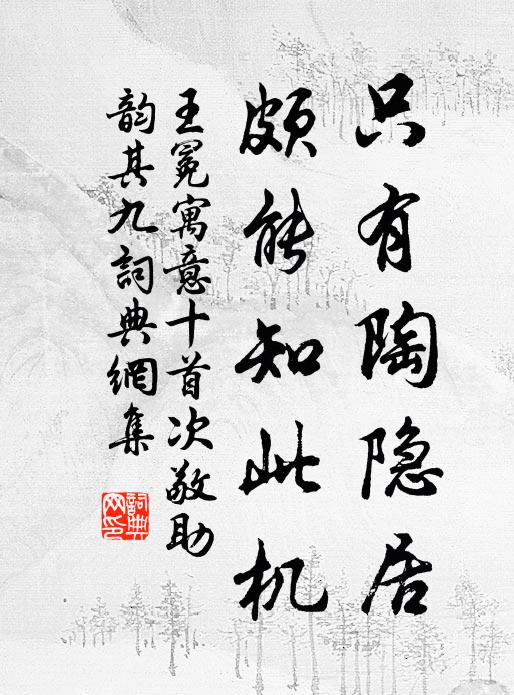 只有陶隐居
颇能知此机
王冕寓意十首次敬助
韵其九詞典網集
詞典网印